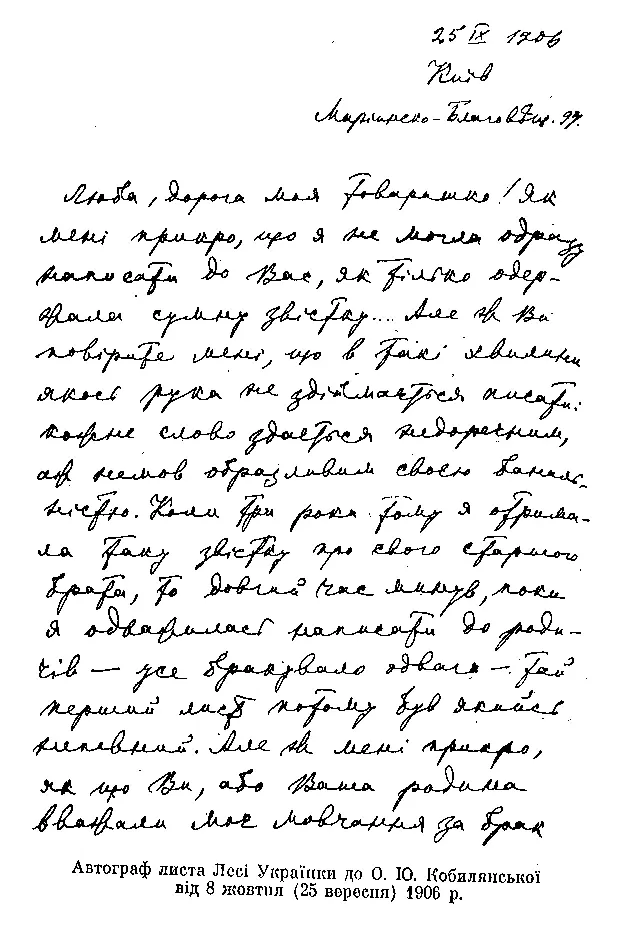 25 IX 1906
Київ
Маріинско-Благовѣщ. 97.
Люба, дорога моя товаришко! Як
мені прикро, що я не могла одразу
написати до Вас, як тілько одер-
жала сумну звістку... Але ж Ви
повірите мені, що в такі хвилини
якось рука не здіймається писати:
кожне слово здається недоречним,
аж немов образливим своєю баналь-
ністю. Коли три роки тому я отрима-
ла таку звістку про свого старшого
брата, то довгий час минув, поки
я одважилась написати до роди-
чів — усе бракувало одваги — тай
перший лист потому був якийсь
непевний. Але ж мені прикро,
як що Ви, або Ваша родина
вважали моє мовчання за брак
Автограф листа Лесі Українки до О. Ю. Кобилянської
від 8 жовтня (25 вересня) 1906 р.